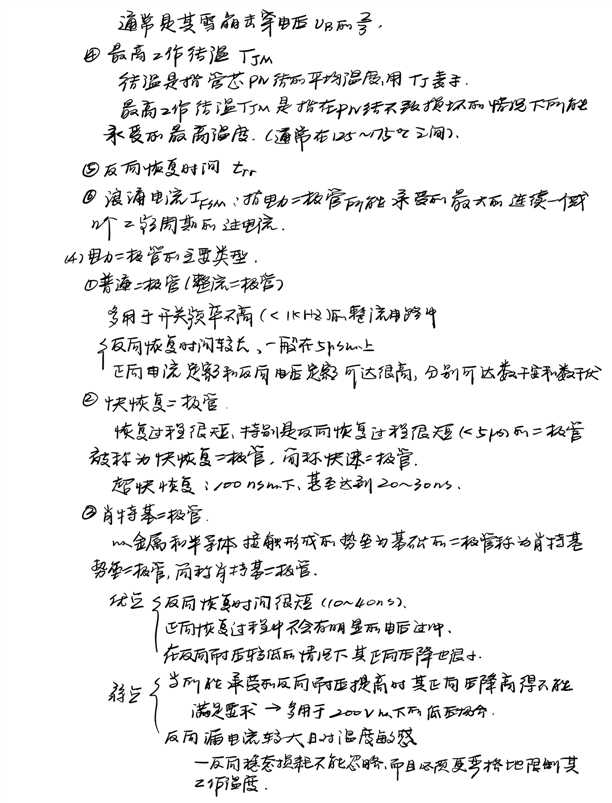 通常是其雪崩击穿电压 UB的 2/3.
④ 最高工作结温 TJM
结温是指管芯PN结的平均温度,用TJ表示.
最高工作结温TJM是指在PN结不致损坏的情况下所能
承受的最高温度.(通常在125~175℃之间).
⑤ 反向恢复时间 trr
⑥ 浪涌电流IFSM:指电力二极管所能承受的最大的连续一个或
几个工频周期的过电流.
(4) 电力二极管的主要类型.
①普通二极管(整流二极管)
多用于开关频率不高(<1kHz)的整流电路中
反向恢复时间较长、一般在5μs以上
正向电流定额和反向电压定额可达很高,分别可达数千安和数千伏
② 快恢复二极管.
恢复过程很短,特别是反向恢复过程很短(<5μs)的二极管
被称为快恢复二极管,简称快速二极管.
超快恢复:100ns以下,甚至达到20~30ns.
③肖特基二极管.
以金属和半导体接触形成的势垒为基础的二极管称为肖特基
势垒二极管,简称肖特基二极管.
优点 反向恢复时间很短(10~40ns).
正向恢复过程中不会有明显的电压过冲.
在反向耐压较低的情况下其正向压降也很小.
弱点 当所能承受的反向耐压提高时其正向压降高得不能
满足要求 → 多用于200V以下的低压场合.
反向漏电流较大且对温度敏感
—反向稳态损耗不能忽略,而且必须更严格地限制其
工作温度.